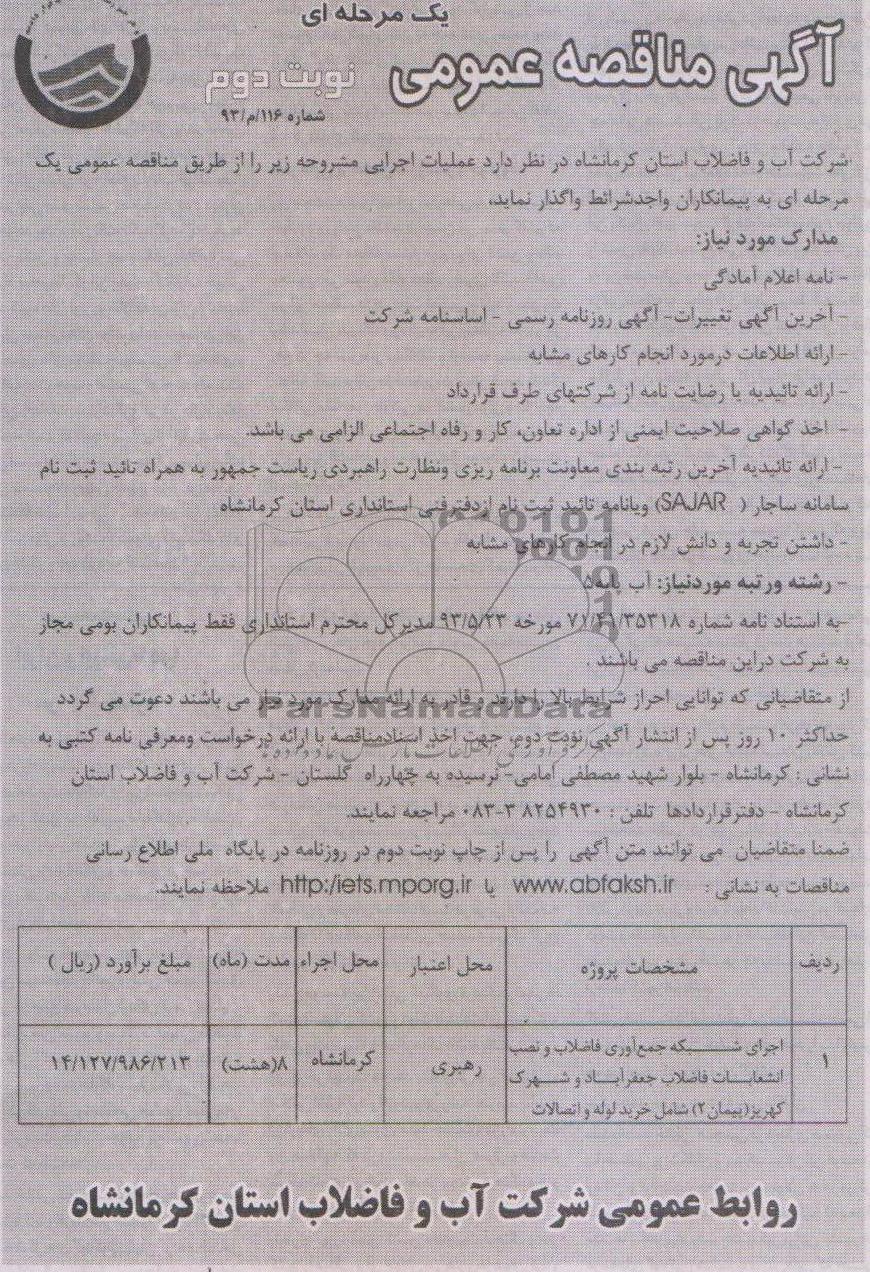 یک مرحله ای
آگهی مناقصه عمومی
نوبت دوم
شماره ۱۱۶/م/۹۳
شرکت آب و فاضلاب استان کرمانشاه در نظر دارد عملیات اجرایی مشروحه زیر را از طریق مناقصه عمومی یک
مرحله ای به پیمانکاران واجدشرائط واگذار نماید.
مدارک مورد نیاز:
- نامه اعلام آمادگی
- آخرین آگهی تغییرات- آگهی روزنامه رسمی - اساسنامه شرکت
- ارائه اطلاعات درمورد انجام کارهای مشابه
- ارائه تائیدیه یا رضایت نامه از شرکتهای طرف قرارداد
- اخذ گواهی صلاحیت ایمنی از اداره تعاون، کار و رفاه اجتماعی الزامی می باشد.
- ارائه تائیدیه آخرین رتبه بندی معاونت برنامه ریزی ونظارت راهبردی ریاست جمهور به همراه تائید ثبت نام
سامانه ساجار ( SAJAR) ویانامه تائید ثبت نام ازدفترفنی استانداری استان کرمانشاه
- داشتن تجربه و دانش لازم در انجام کارهای مشابه
- رشته ورتبه موردنیاز: آب پایه۵
-به استناد نامه شماره ۷۱/۴۱/۳۵۳۱۸ مورخه ۹۳/۵/۲۳ مدیرکل محترم استانداری فقط پیمانکاران بومی مجاز
به شرکت دراین مناقصه می باشند .
از متقاضیانی که توانایی احراز شرایط بالا را دارند و قادر به ارائه مدارک مورد نیاز می باشند دعوت می گردد
ParsNamadData
حداکثر ۱۰ روز پس از انتشار آگهی نوبت دوم، جهت اخذ اسنادمناقصه با ارائه درخواست ومعرفی نامه کتبی به
نشانی : کرمانشاه - بلوار شهید مصطفی امامی- نرسیده به چهارراه گلستان - شرکت آب و فاضلاب استان
کرمانشاه - دفترقراردادها تلفن : ۸۲۵۴۹۳۰ ۳-۰۸۳ مراجعه نمایند.
ضمنا متقاضیان می توانند متن آگهی را پس از چاپ نوبت دوم در روزنامه در پایگاه ملی اطلاع رسانی
مناقصات به نشانی : www.abfaksh.ir یا http:/iets.mporg.ir ملاحظه نمایند.
ردیف مشخصات پروژه محل اعتبار محل اجراء مدت (ماه) مبلغ برآورد (ریال )
۱ اجرای شبکه جمع‌آوری فاضلاب و نصب انشعابات فاضلاب جعفرآباد و شهرک کهریز(پیمان۲) شامل خرید لوله و اتصالات رهبری کرمانشاه ۸(هشت) ۱۴/۱۲۷/۹۸۶/۲۱۳
روابط عمومی شرکت آب و فاضلاب استان کرمانشاه